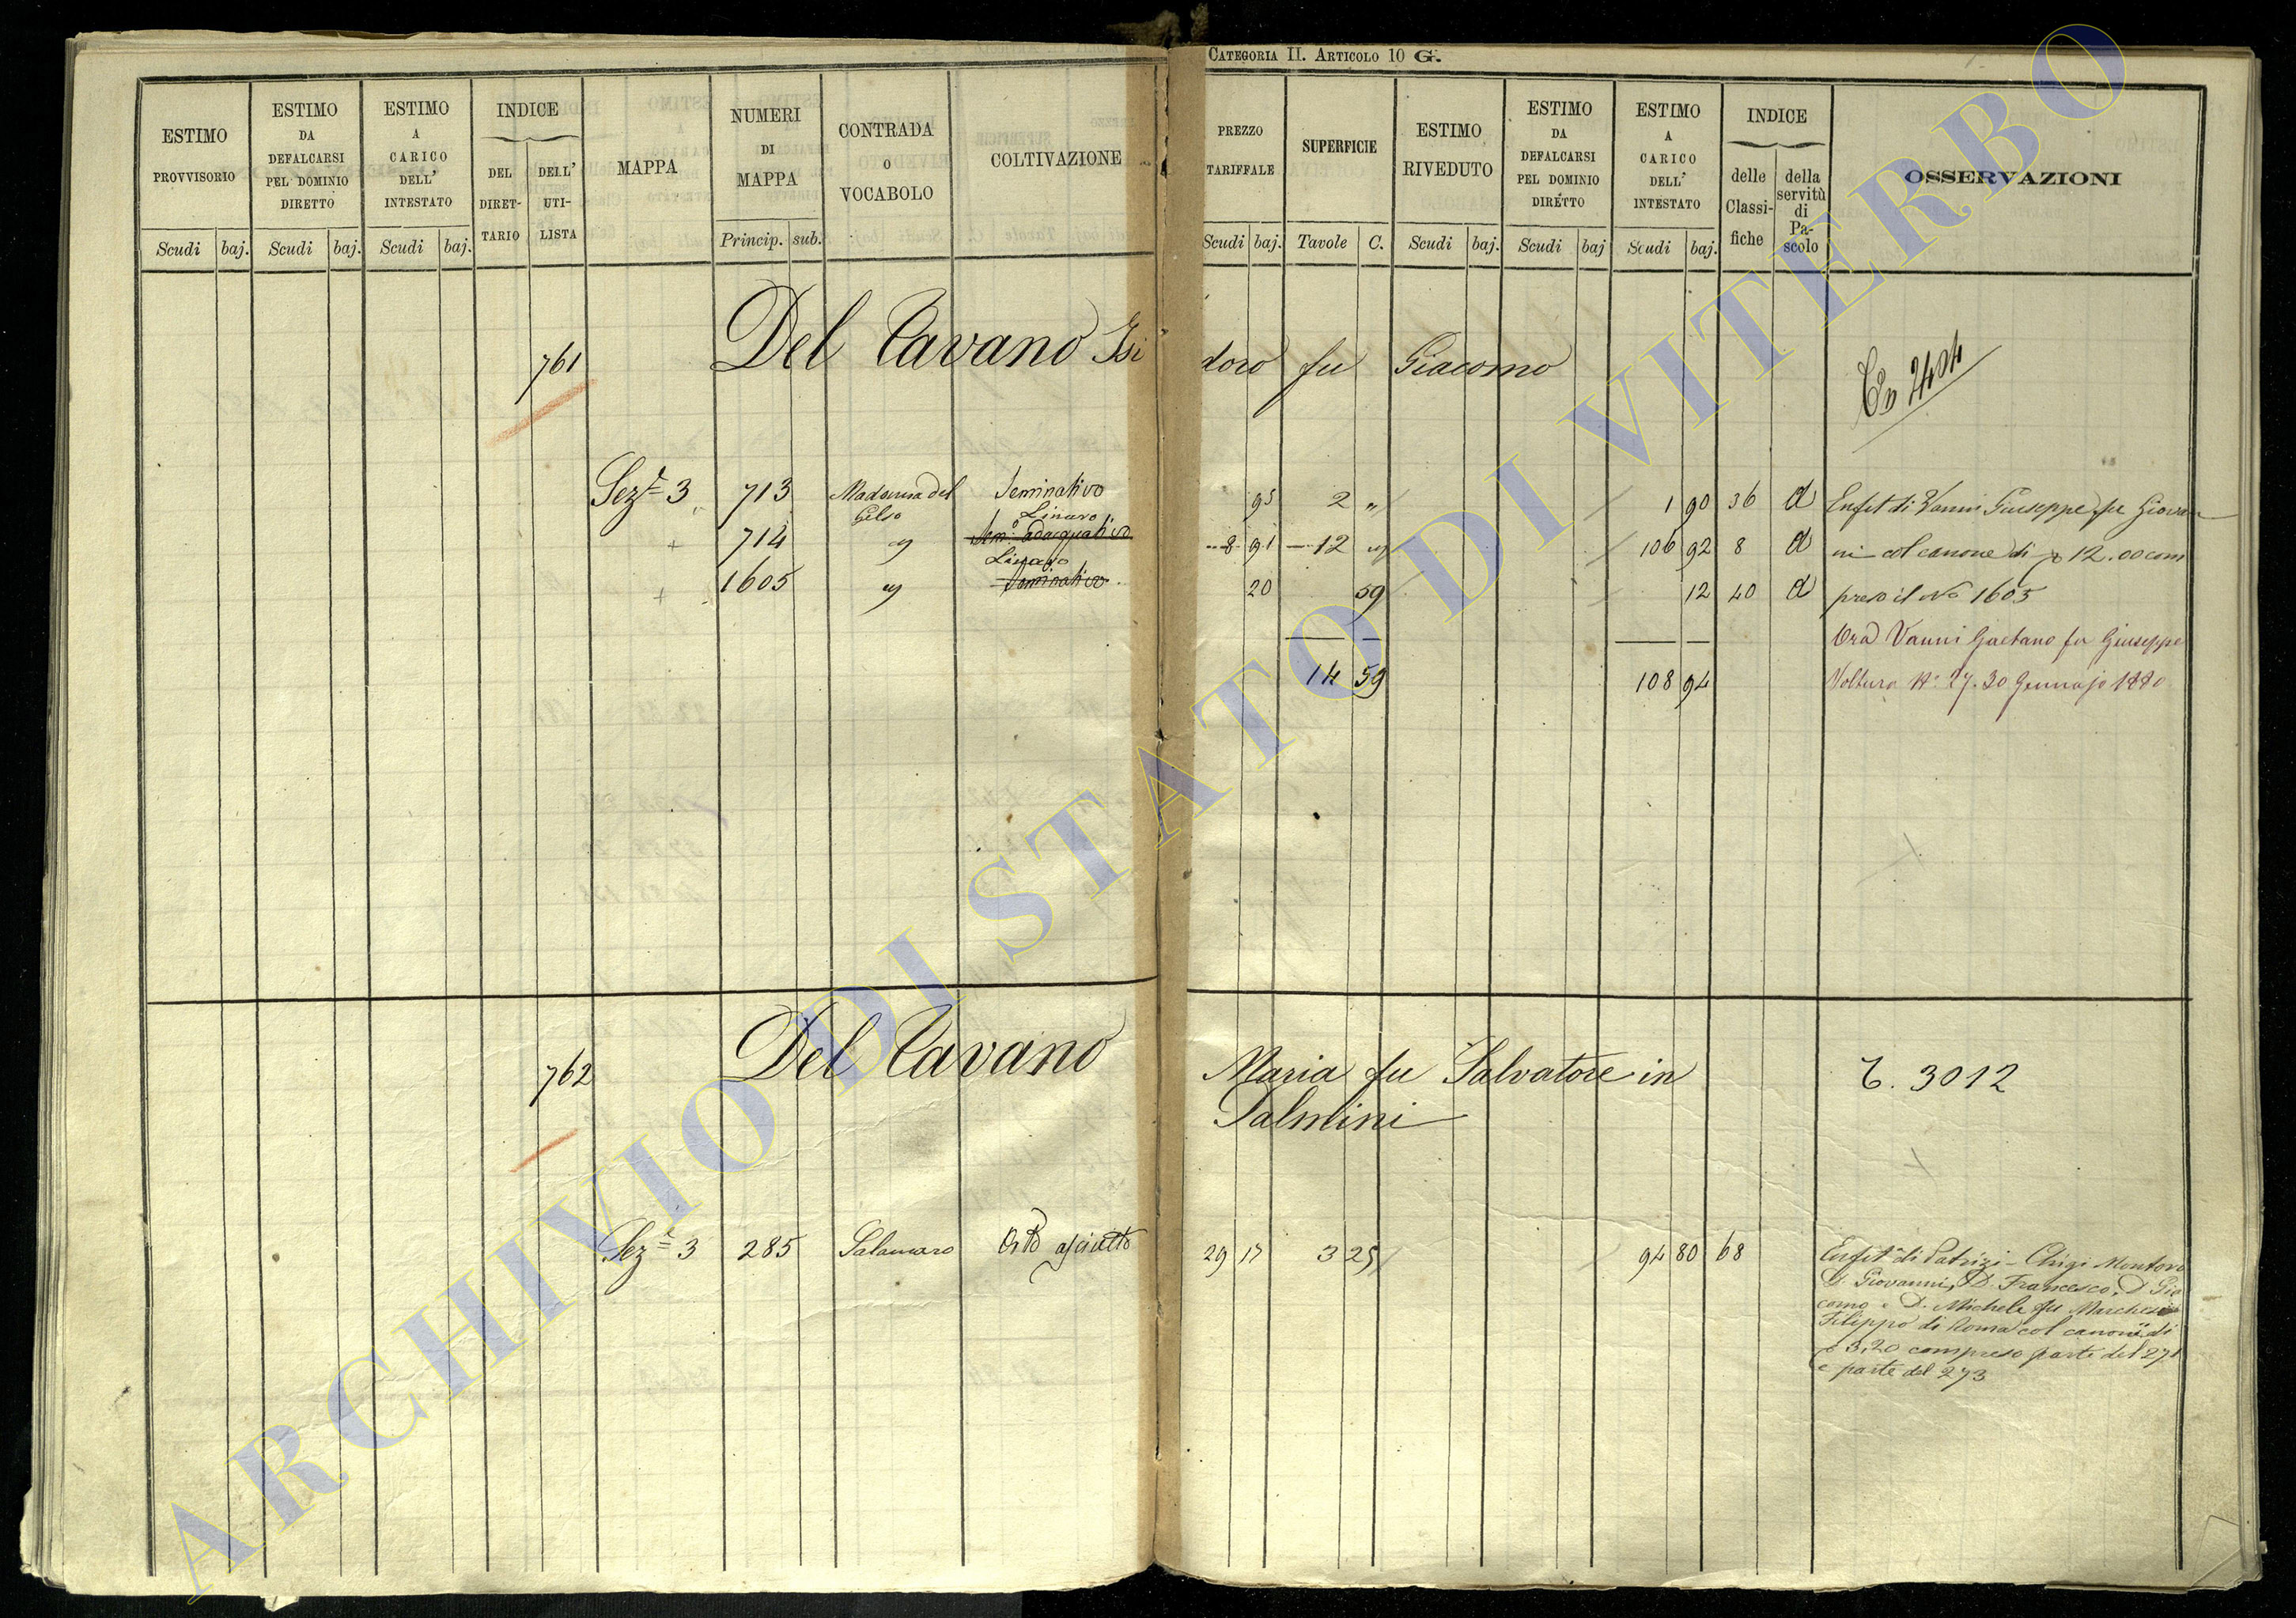 CATEGORIA II. ARTICOLO 10 G.
ESTIMO PROVVISORIO
ESTIMO DA DEFALCARSI PEL DOMINIO DIRETTO
ESTIMO A CARICO DELL' INTESTATO
INDICE
DEL DIRET-TARIO
DELL' UTI-LISTA
MAPPA
NUMERI DI MAPPA
CONTRADA O VOCABOLO
COLTIVAZIONE
PREZZO TARIFFALE
SUPERFICIE
ESTIMO RIVEDUTO
ESTIMO DA DEFALCARSI PEL DOMINIO DIRETTO
ESTIMO A CARICO DELL' INTESTATO
INDICE
delle Classi-fiche
della servitù di Pa-scolo
OSSERVAZIONI
Scudi baj. Scudi baj. Scudi baj. Princip. sub. Scudi baj. Tavole C. Scudi baj. Scudi baj Scudi baj.
761 Del Cavano Isidoro fu Giacomo
404
Sez.e 3 713 Madonna del Gelso Seminativo 95 2 " 1 90 36 d Enfit di Vanni Giuseppe fu Giovan
714 " Linaro Sem.o adacquativo 8 91 12 " 106 92 8 d ni col canone di 12.00 com
1605 " Linaro Seminativo 20 59 12 40 d preso il No 1605
Ora Vanni Gaetano fu Giuseppe
14 59 108 94 Voltura N. 27. 30 Gennajo 1880
762 Del Cavano Maria fu Salvatore in
Salmini
T. 3012
Sez.e 3 285 Salamaro Orto asciutto 29 17 3 25 94 80 68
Enfit. di Patrizi-Chigi Montoro
D. Giovanni, D. Francesco, D Gia
como e D. Michele fu Marchese
Filippo di Roma col canone di
3,20 compreso parte del 271
e parte del 273
ARCHIVIO DI STATO DI VITERBO